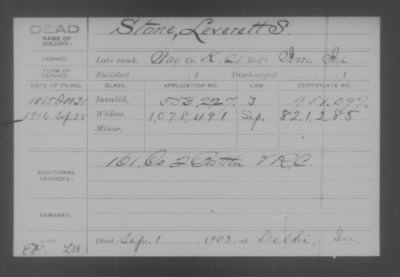 DEAD
NAME OF SOLDIER: Stone, Leverett S.
SERVICE: Late rank, Co. K, 21 Reg't Inf
TERM OF SERVICE: Enlisted , 1 Discharged , 1
DATE OF FILING. CLASS. APPLICATION NO. LAW. CERTIFICATE NO.
1885 Dec 21 Invalid, 553,227 J 958,097
1916 Sep 25 Widow, 1,078,491 Sep. 821,285
Minor,
ADDITIONAL SERVICES: 161, Co 2 Batt'n V.R.C.
REMARKS:
Died Sep. 1 1903, at Delhi, Ia